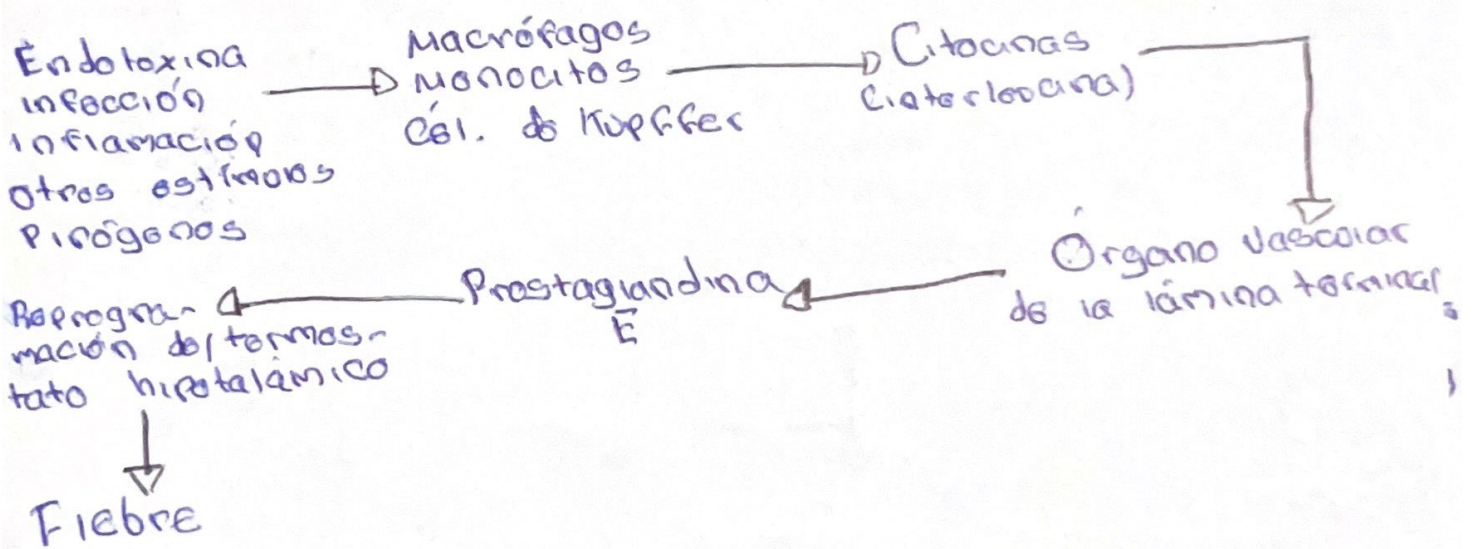 Endotoxina
infección
inflamación
otros estímulos
pirógenos
Macrófagos
Monocitos
Cél. de Kupffer
Citocinas
(interleucina)
Órgano vascular
de la lámina terminal
Prostaglandina
E
Reprogra-
mación del termos-
tato hipotalámico
Fiebre